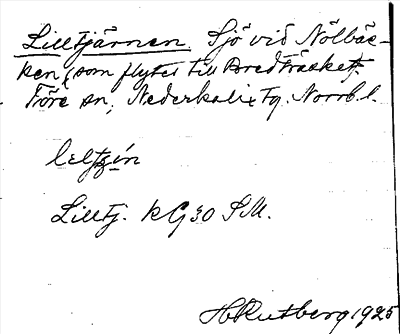 Lilltjärnen. Sjö vid Nölbäc-
ken (som flyter till Bredträsket).
Töre sn, Nederkalix tg. Norrb. l.
Lilltj. kG30 SM.
H Rutberg 1925